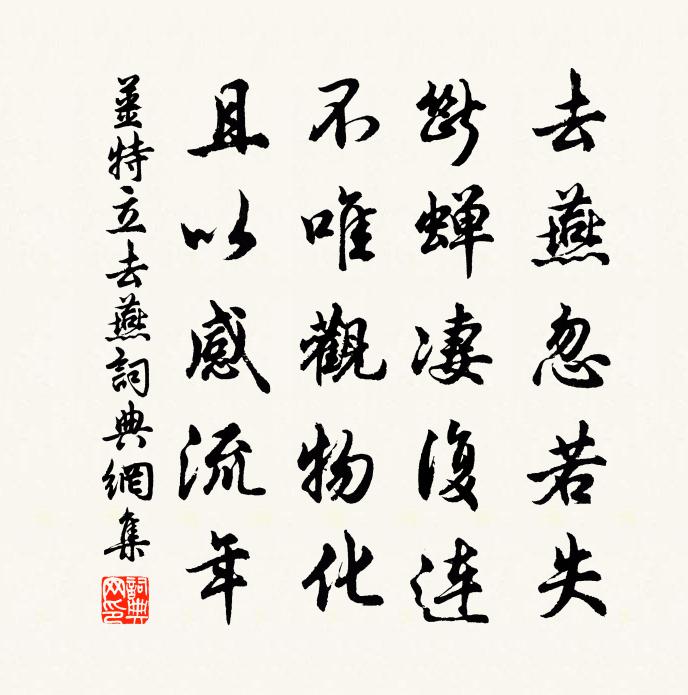 去燕忽若失
斷蝉凄復連
不唯觀物化
且以感流年
薑特立去燕詞典網集
詞典网印